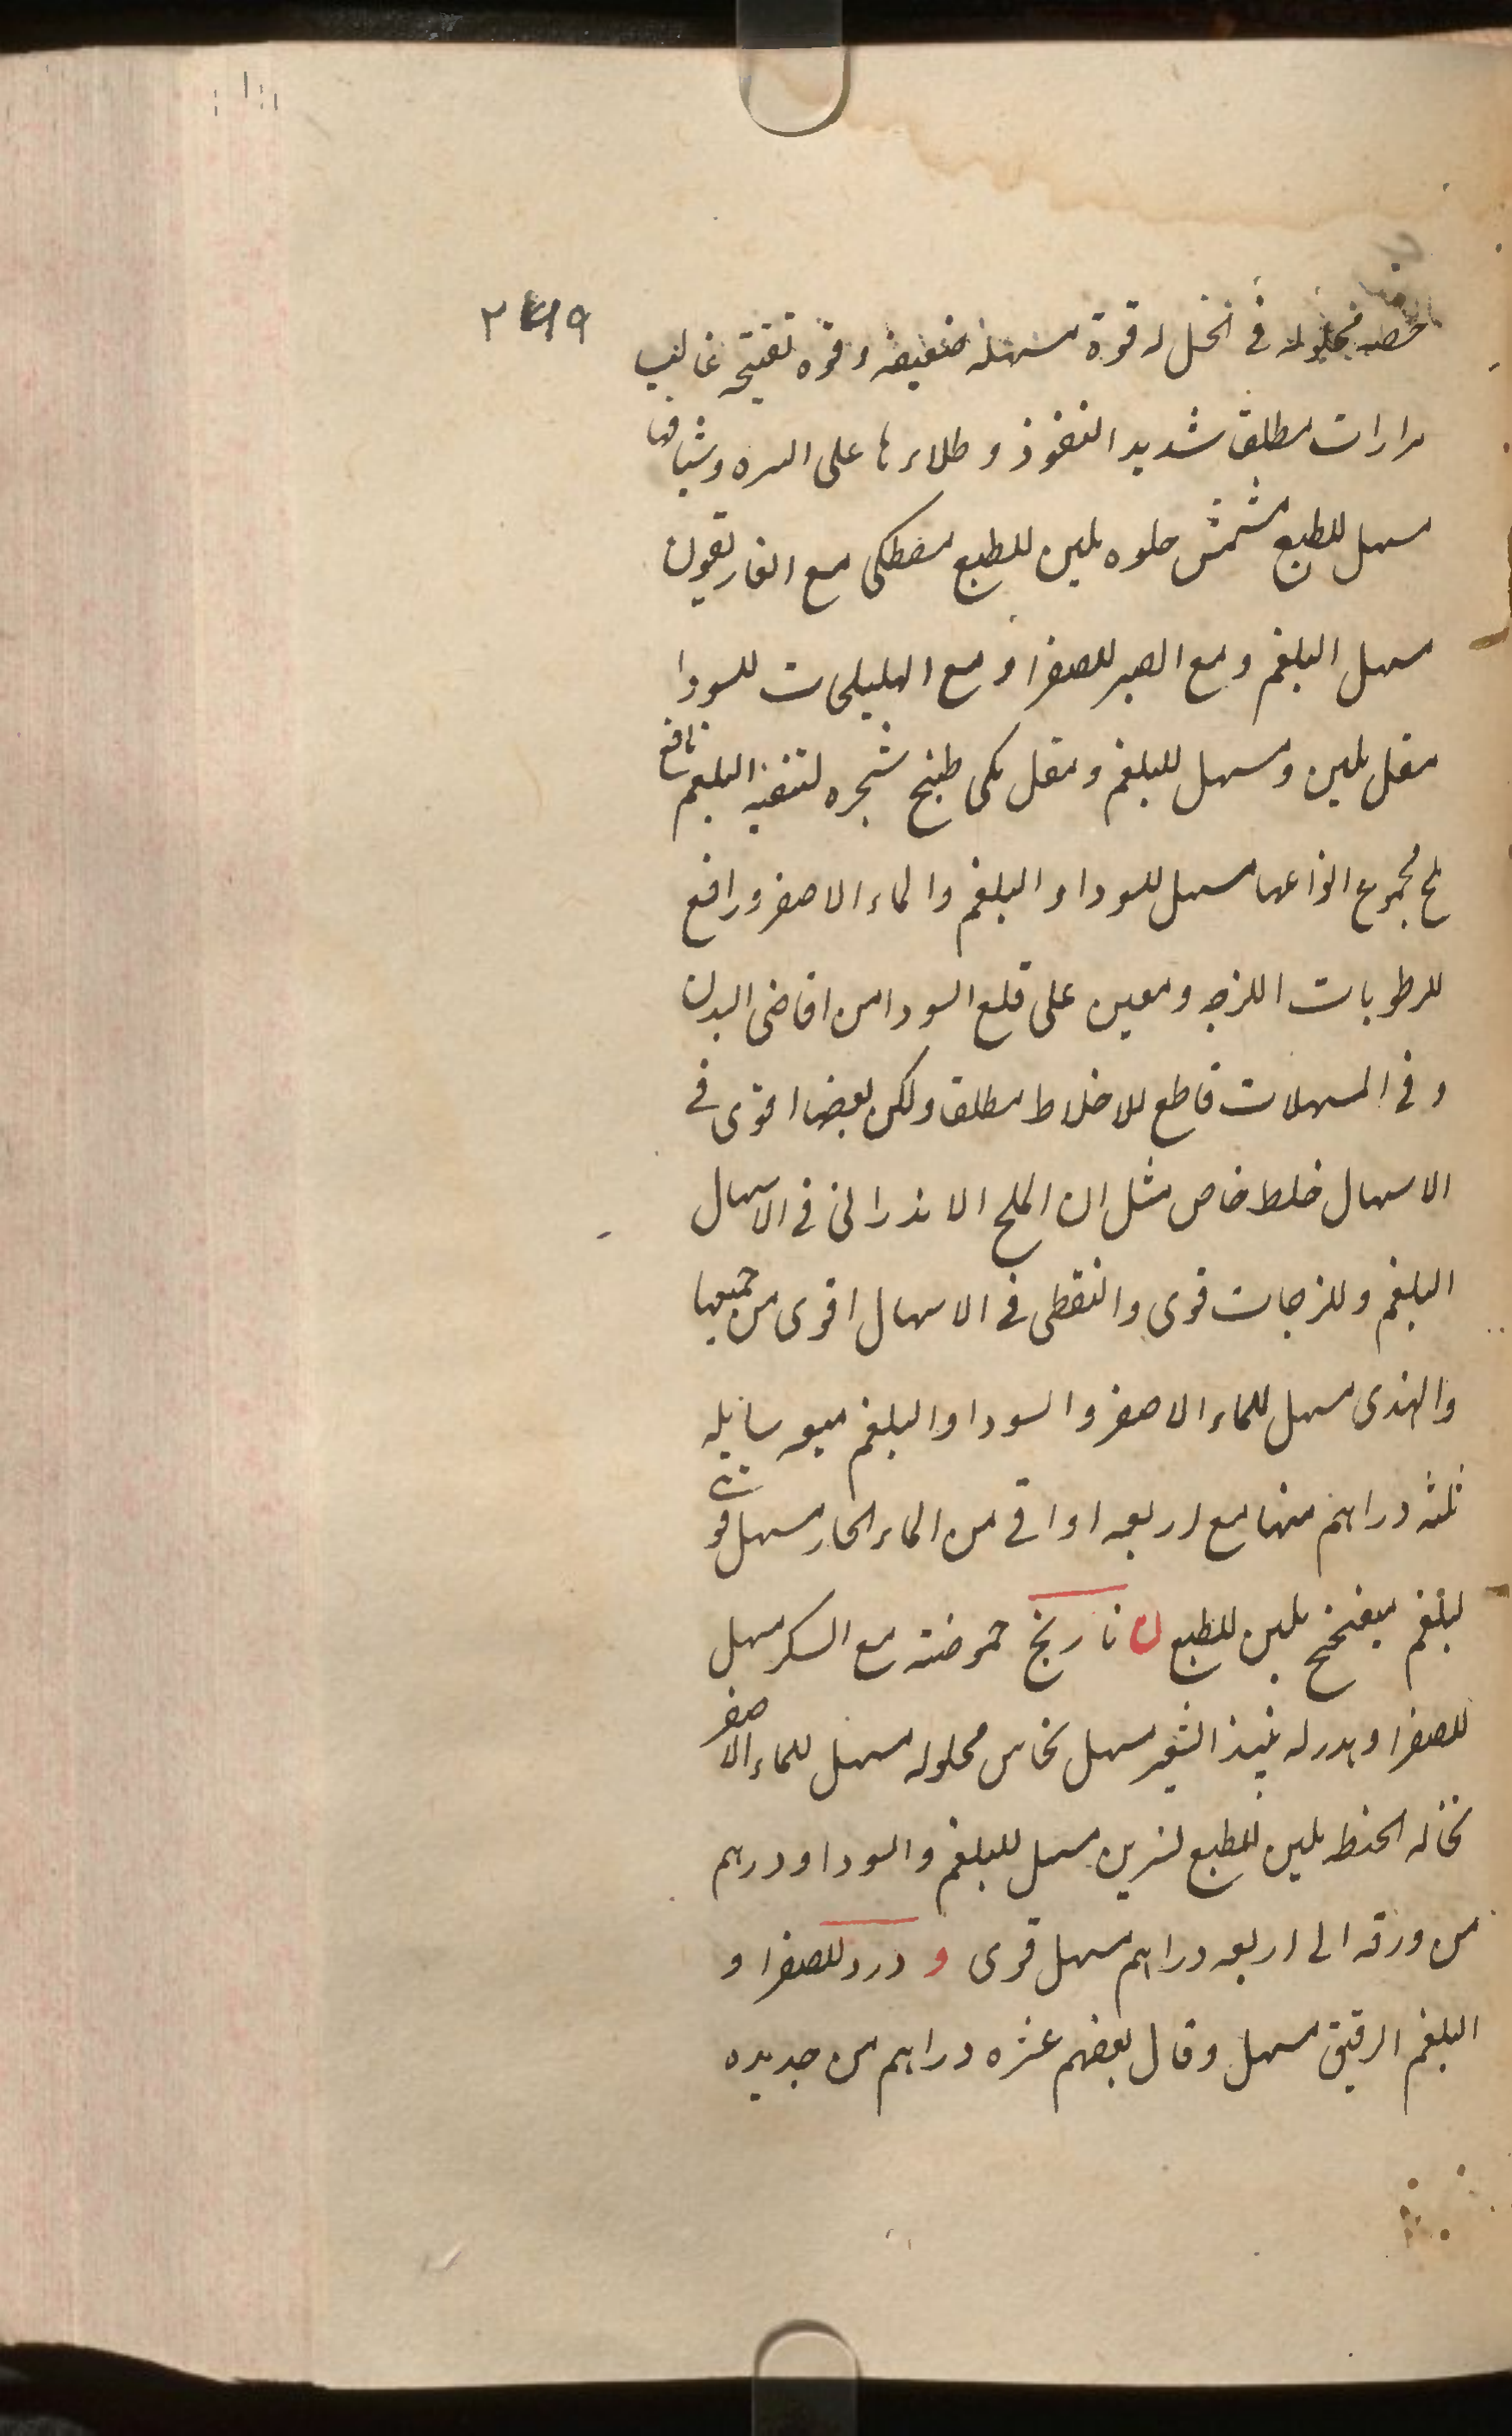 ٢٤١٩
محلوله فى الخل له قوة مسهله ضعيفه و قوه تفتيحه غالب
مرارات مطلق شديد النفوذ و طلاءها على السره و شيافها
مسهل للطبع مشمش حلوه ملين للطبع مصطكى مع الغاريقون
مسهل البلغم و مع الصبر للصفرا و مع الهليلجات للسودا
مقل ملين و مسهل للبلغم و مقل مكى طبخ شجره لتنقيه البلغم نافع
ملح مجموع انواعها مسهل للسودا و البلغم و الماء الاصفر و رافع
للرطوبات اللزجه و معين على قلع السودا من اقاصى البدن
و فى المسهلات قاطع للاخلاط مطلق و لكن بعضها اقوى فى
الاسهال خلط خاص مثل ان الملح الاندرانى فى الاسهال
البلغم و للزجات قوى و النفطى فى الاسهال اقوى من جميعها
و الهندى مسهل للماء الاصفر و السودا و البلغم ميعه سايله
ثلثه دراهم منها مع اربعه اواقى من الماء الحار مسهل قوى
لبلغم ميفختج ملين للطبع ن نارنج حموضته مع السكر مسهل
للصفرا و بدرله نبيذ الشعير مسهل نحاس محلوله مسهل للماء الاصفر
نخاله الحنطه ملين للطبع نسرين مسهل للبلغم و السودا و درهم
من ورقه الى اربعه دراهم مسهل قوى و ورد للصفرا و
البلغم الرقيق مسهل و قال بعضهم عشره دراهم من جديده